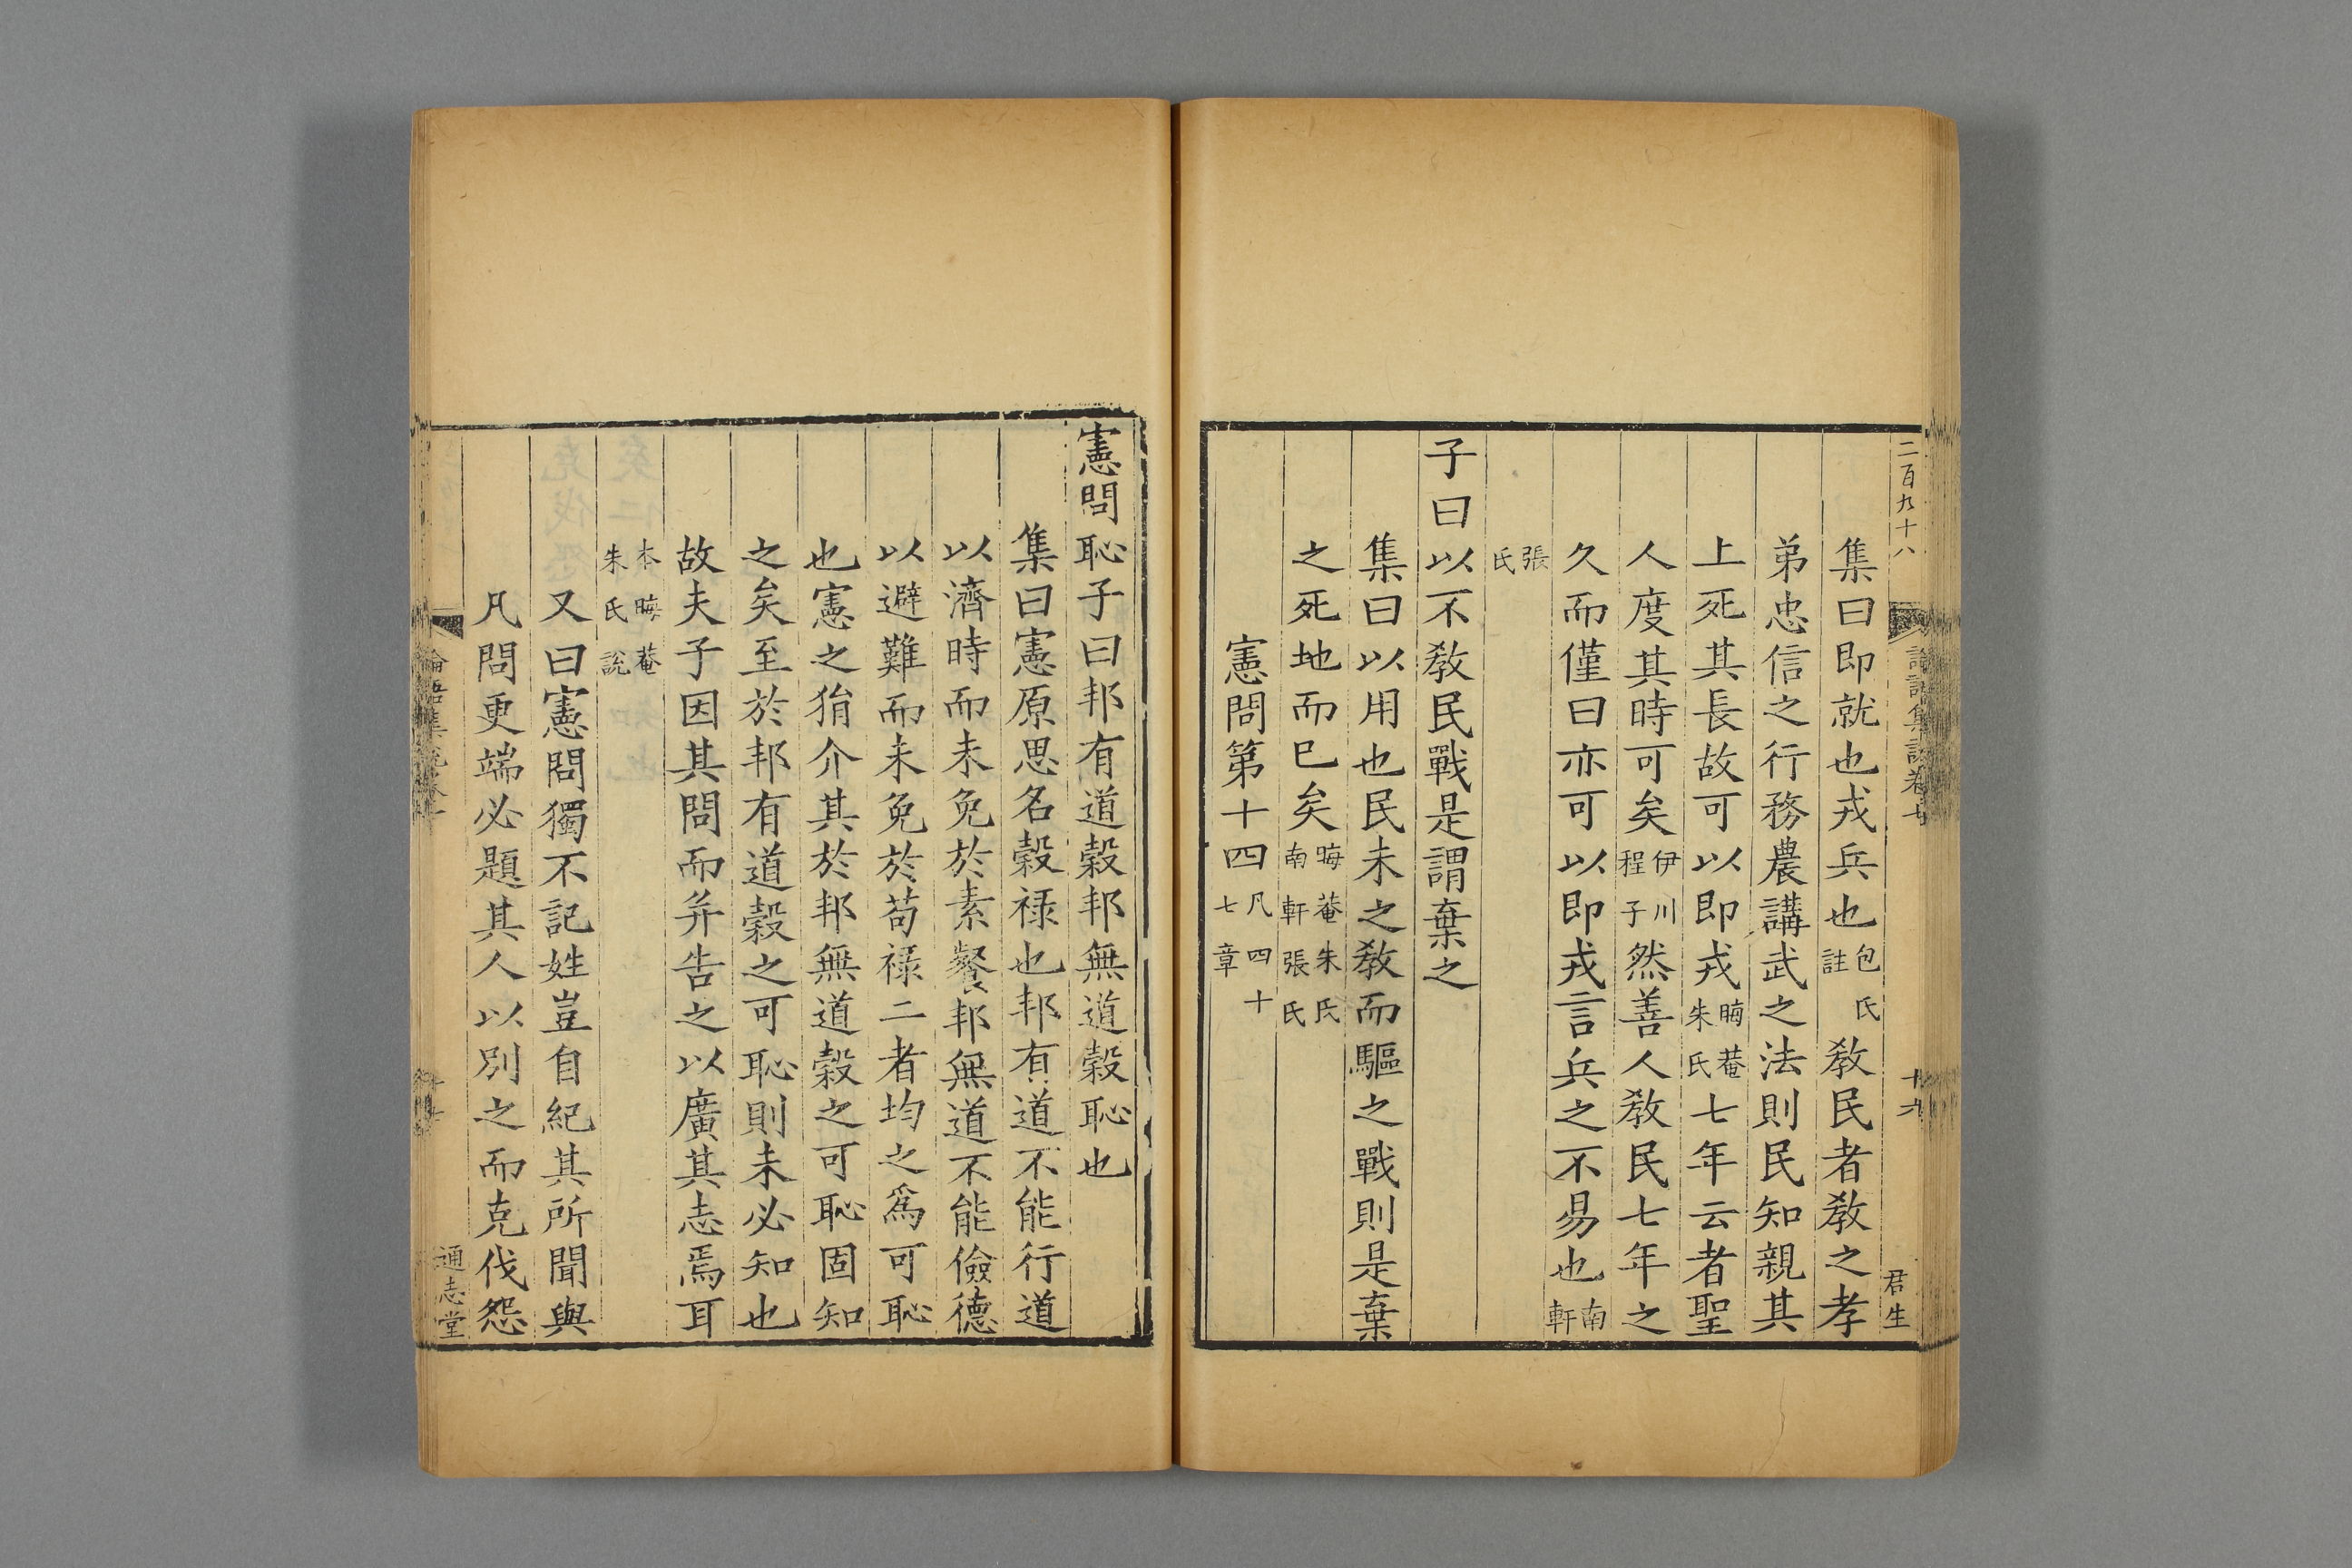 二百九十八
論語集說卷七
十九
君生
集曰即就也戎兵也包氏註教民者教之孝
弟忠信之行務農講武之法則民知親其
上死其長故可以即戎晦菴朱氏七年云者聖
人度其時可矣伊川程子然善人教民七年之
久而僅曰亦可以即戎言兵之不易也南軒
張氏
子曰以不教民戰是謂棄之
集曰以用也民未之教而驅之戰則是棄
之死地而已矣晦菴朱氏南軒張氏
憲問第十四凡四十七章
憲問恥子曰邦有道穀邦無道穀恥也
集曰憲原思名穀祿也邦有道不能行道
以濟時而未免於素餐邦無道不能儉德
以避難而未免於苟祿二者均之爲可恥
也憲之狷介其於邦無道穀之可恥固知
之矣至於邦有道穀之可恥則未必知也
故夫子因其問而并告之以廣其志焉耳
本晦菴朱氏說
又曰憲問獨不記姓豈自紀其所聞與
凡問更端必題其人以別之而克伐怨
通志堂